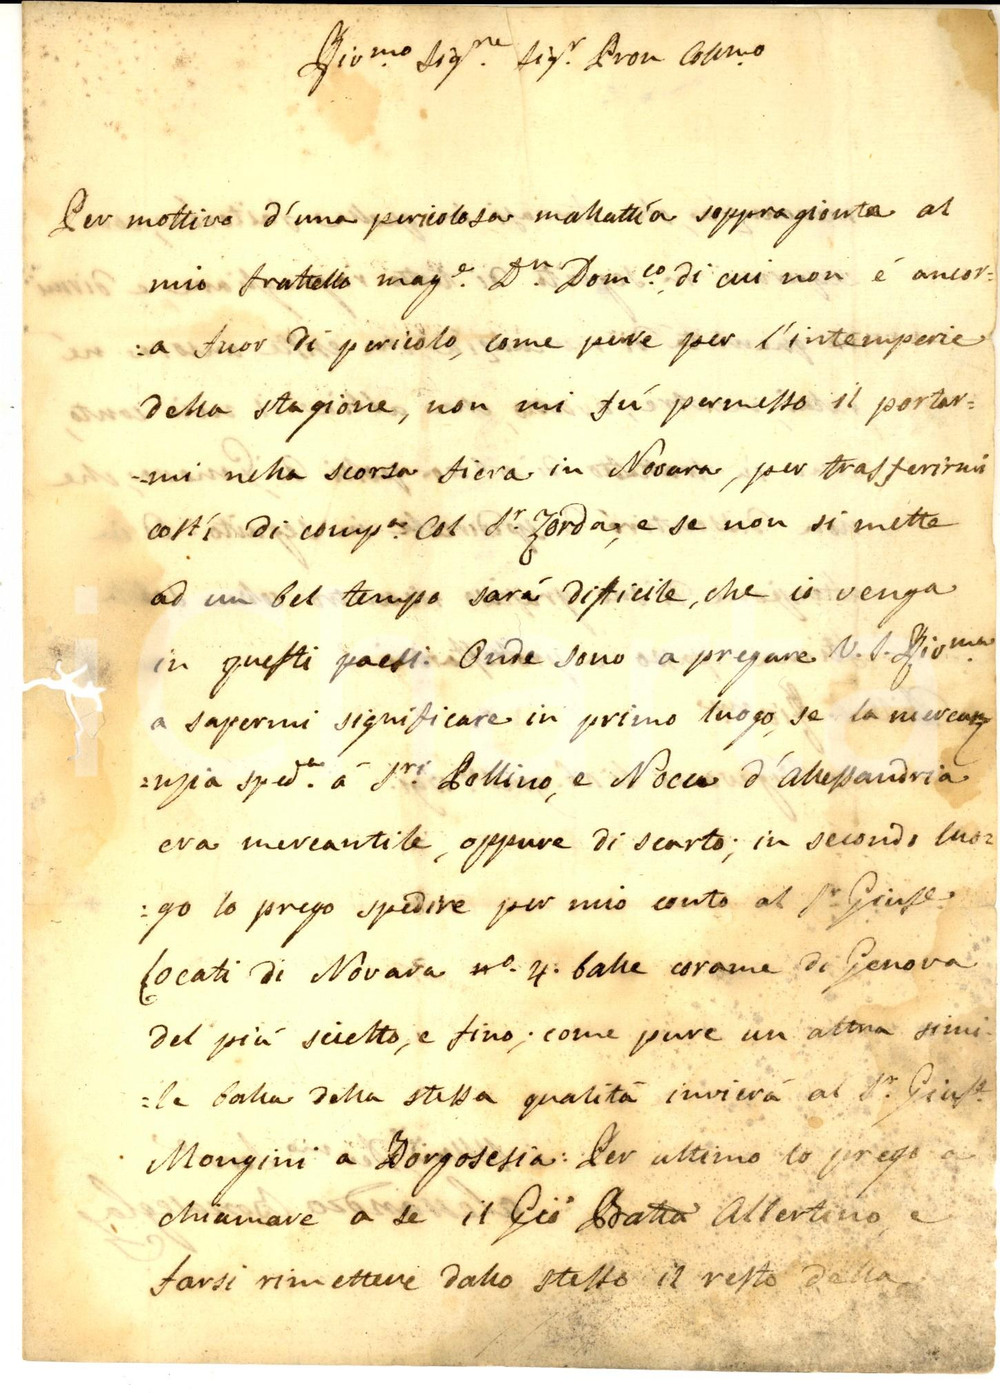 Sig.ne Sig.r Pron Colmo
Per mottivo d'una pericolosa mallattia soppragionta al
mio fratello mag.e D.n Dom.co, di cui non é ancor=
:a fuor di pericolo, come pure per l'intemperie
della stagione, non mi fú permesso il portar=
-mi nella scorsa fiera in Novara, per trasferirmi
costí di comp.a Col S.r Zorda, e se non si mette
ad un bel tempo sará difficile, che io venga
in questi paesi. Onde sono a pregare V. S.
a sapermi significare in primo luogo, se la mercan
=nzia sped.a á S.ri Pollino, e Nocca d'Alessandria
era mercantile, oppure di scarto; in secondo luo=
:go lo prego spedire per mio conto al S.r Giuse.
Locati di Novara n.o 4. balle corame di Genova
del piú scielto, e fino; come pure un altra simi
=le balla della stessa qualitá invierá al S.r Gius.e
Mongini a Borgosesia: Per ultimo lo prego a
chiamare a se il Gio Batta Albertino, e
farsi rimettere dallo stesso il resto della